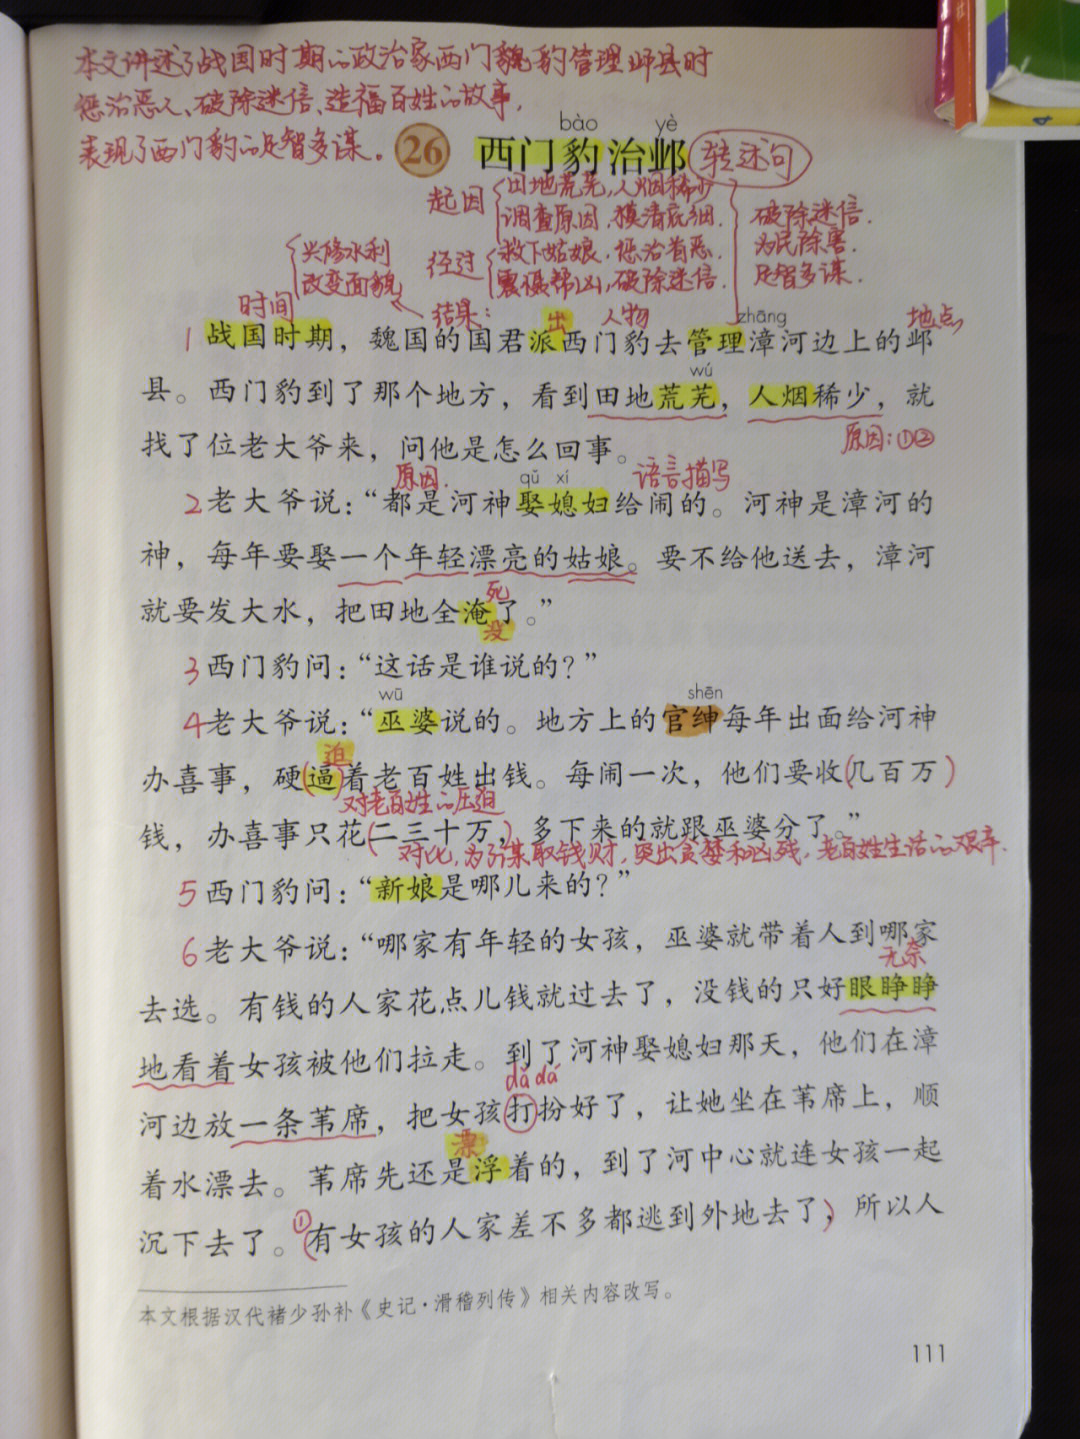 本文讲述了战国时期的政治家西门豹管理邺县时
惩治恶人、破除迷信、造福百姓的故事.
表现了西门豹的足智多谋。
bào yè
26 西门豹治邺 转述句
起因 田地荒芜,人烟稀少
调查原因,摸清底细.
经过 救下姑娘,惩治首恶.
震慑帮凶,破除迷信.
结果:
兴修水利
改变面貌
破除迷信.
为民除害.
足智多谋.
时间 出 人物 zhāng 地点
1 战国时期，魏国的国君派西门豹去管理漳河边上的邺
wú
县。西门豹到了那个地方，看到田地荒芜，人烟稀少，就
原因:①②
找了位老大爷来，问他是怎么回事。
原因. qǔ xí 语言描写
2 老大爷说：“都是河神娶媳妇给闹的。河神是漳河的
神，每年要娶一个年轻漂亮的姑娘。要不给他送去，漳河
死
就要发大水，把田地全淹了。”
没
3 西门豹问：“这话是谁说的？”
wū shēn
4 老大爷说：“巫婆说的。地方上的官绅每年出面给河神
迫
办喜事，硬逼着老百姓出钱。每闹一次，他们要收(几百万)
对老百姓的压迫
钱，办喜事只花(二三十万)，多下来的就跟巫婆分了。”
对比,为了谋取钱财,突出贪婪和凶残,老百姓生活的艰辛.
5 西门豹问：“新娘是哪儿来的？”
6 老大爷说：“哪家有年轻的女孩，巫婆就带着人到哪家
无奈
去选。有钱的人家花点儿钱就过去了，没钱的只好眼睁睁
地看着女孩被他们拉走。到了河神娶媳妇那天，他们在漳
dǎ dá
河边放一条苇席，把女孩打扮好了，让她坐在苇席上，顺
漂
着水漂去。苇席先还是浮着的，到了河中心就连女孩一起
沉下去了。①(有女孩的人家差不多都逃到外地去了)，所以人
本文根据汉代褚少孙补《史记·滑稽列传》相关内容改写。
111